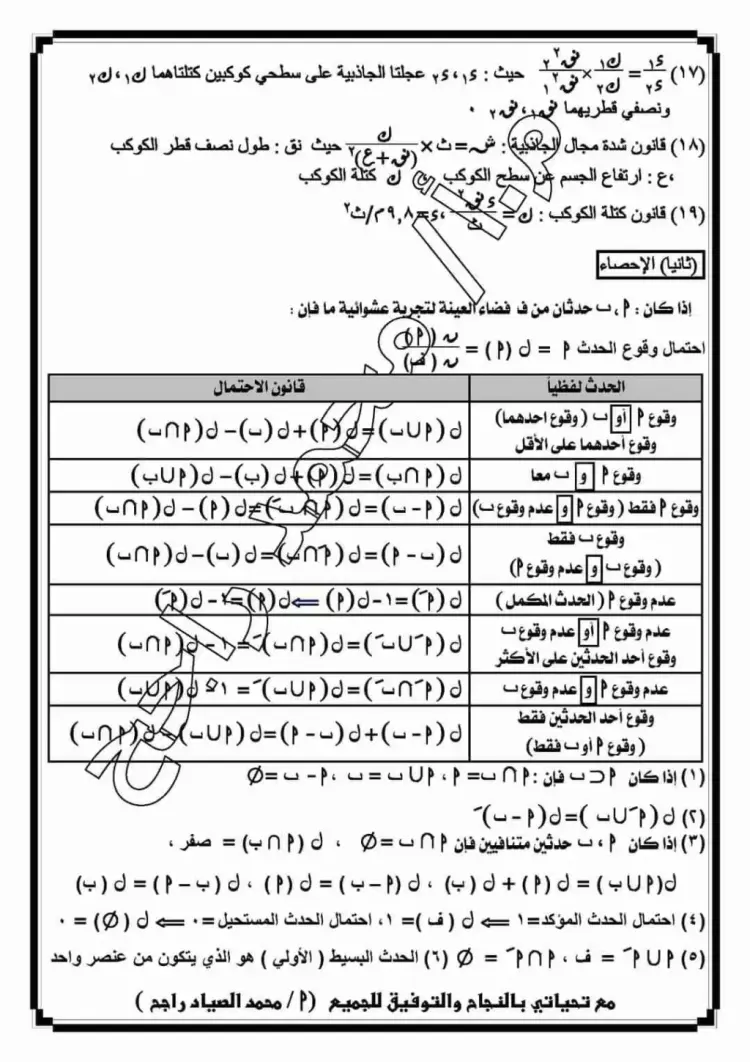 (١٧) ء١/ء٢ = ك١/ك٢ × نق٢²/نق١² حيث : ء١، ء٢ عجلتا الجاذبية على سطحي كوكبين كتلتاهما ك١، ك٢
ونصفي قطريهما نق١، نق٢ .
(١٨) قانون شدة مجال الجاذبية : ش = ث × ك/(نق+ع)² حيث نق : طول نصف قطر الكوكب
،ع : ارتفاع الجسم عن سطح الكوكب ، ك كتلة الكوكب
(١٩) قانون كتلة الكوكب : ك = ء نق²/ث ،ء=٩,٨م/ث²
(ثانيا) الإحصاء
إذا كان : ا، ب حدثان من ف فضاء العينة لتجربة عشوائية ما فإن :
احتمال وقوع الحدث ا = ل (ا) = ن (ا)/ن (ف)
الحدث لفظياً قانون الاحتمال
وقوع ا أو ب (وقوع احدهما)
وقوع أحدهما على الأقل
ل (ا∪ب)=ل (ا)+ل (ب)– ل(ا∩ب)
وقوع ا و ب معا ل (ا∩ب)=ل (ا)+ل (ب)– ل(ا∪ب)
وقوع ا فقط (وقوع ا و عدم وقوع ب) ل (ا– ب)=ل(ا∩ب َ)=ل(ا) – ل(ا∩ب)
وقوع ب فقط
(وقوع ب و عدم وقوع ا)
ل (ب– ا)=ل(ا َ∩ب)=ل(ب)–ل(ا∩ب)
عدم وقوع ا (الحدث المكمل) ل (ا َ)=١–ل(ا) ⇐ل(ا)=١–ل(ا َ)
عدم وقوع ا أو عدم وقوع ب
وقوع أحد الحدثين على الأكثر
ل (ا َ∪ب َ)=ل(ا∩ب) َ= ١ –ل(ا∩ب)
عدم وقوع ا و عدم وقوع ب ل (ا َ∩ب َ)=ل(ا∪ب) َ= ١– ل(ا∪ب)
وقوع أحد الحدثين فقط
(وقوع ا أو ب فقط)
ل (ا– ب)+ل(ب – ا)=ل (ا∪ب) – ل(ا∩ب)
(١) إذا كان ا⊂ب فإن :ا∩ب=ا، ا∪ب=ب ، ا– ب =∅
(٢) ل (ا َ∪ب )=ل(ا– ب) َ
(٣) إذا كان ا، ب حدثين متنافيين فإن ا∩ب=∅ ، ل (ا∩ب) = صفر ،
ل(ا∪ب ) = ل (ا) + ل (ب) ، ل (ا–ب ) = ل (ا) ، ل (ب –ا ) = ل ( ب)
(٤) احتمال الحدث المؤكد=١ ⇐ ل ( ف )=١، احتمال الحدث المستحيل=٠ ⇐ ل (∅) = ٠
(٥) ا∪ا َ = ف ، ا∩ا َ = ∅ (٦) الحدث البسيط ( الأولي ) هو الذي يتكون من عنصر واحد
مع تحياتي بالنجاح والتوفيق للجميع (ا/ محمد الصياد راجح )